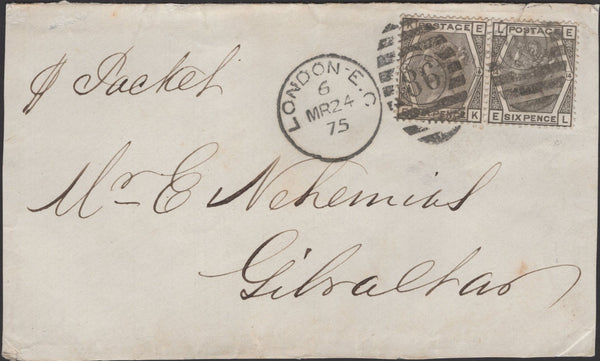 ℘ Packet
LONDON-E.C
6
MR24
75
86
K POSTAGE E
E SIX PENCE K
L POSTAGE E
E SIX PENCE L
Mr E Nehemias
Gibraltar